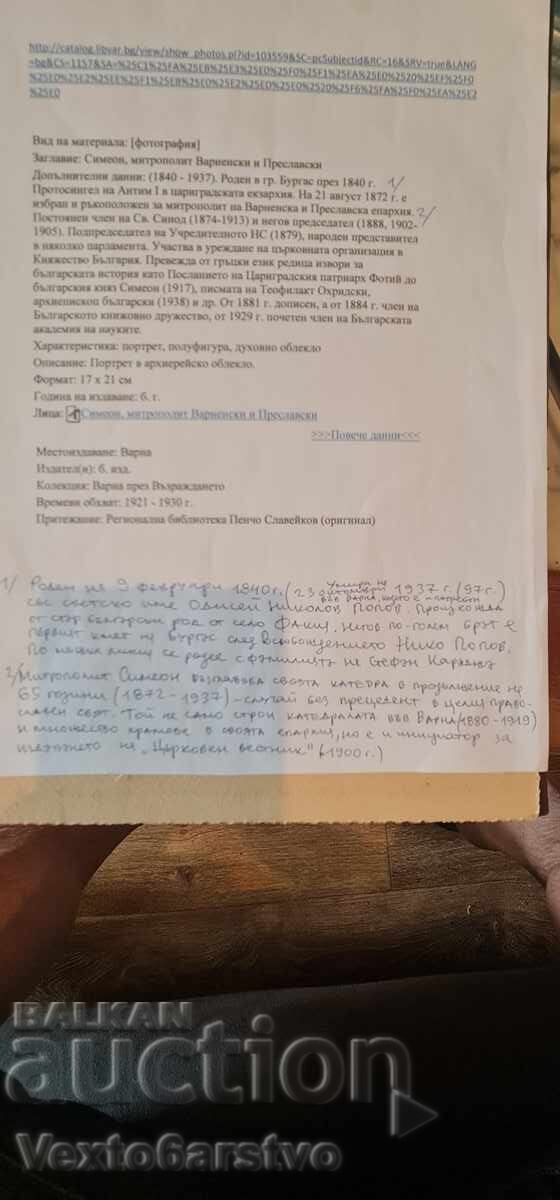 http://catalog.libvar.bg/view/show_photos.pl?id=103559&SC=pcSubjectid&RC=16&SRV=true&LANG
=bg&CS=1157&SA=%25C1%25FA%25EB%25E3%25E0%25F0%25F1%25EA%25E0%2520%25EF%25F0
%25E0%25E2%25EE%25F1%25EB%25E0%25E2%25ED%25E0%2520%25F6%25FA%25F0%25EA%25E2
%25E0
Вид на материала: [фотография]
Заглавие: Симеон, митрополит Варненски и Преславски
Допълнителни данни: (1840 - 1937). Роден в гр. Бургас през 1840 г. 1/
Протосингел на Антим I в цариградската екзархия. На 21 август 1872 г. е
избран и ръкоположен за митрополит на Варненска и Преславска епархия. 2/
Постоянен член на Св. Синод (1874-1913) и негов председател (1888, 1902-
1905). Подпредседател на Учредителното НС (1879), народен представител
в няколко парламента. Участва в уреждане на църковната организация в
Княжество България. Превежда от гръцки език редица извори за
българската история като Посланието на Цариградския патриарх Фотий до
българския княз Симеон (1917), писмата на Теофилакт Охридски,
архиепископ български (1938) и др. От 1881 г. дописен, а от 1884 г. член на
Българското книжовно дружество, от 1929 г. почетен член на Българската
академия на науките.
Характеристика: портрет, полуфигура, духовно облекло
Описание: Портрет в архиерейско облекло.
Формат: 17 x 21 см
Година на издаване: б. г.
Лица: Симеон, митрополит Варненски и Преславски
>>>Повече данни<<<
Местоиздаване: Варна
Издател(и): б. изд.
Колекция: Варна през Възраждането
Времеви обхват: 1921 - 1930 г.
Притежание: Регионална библиотека Пенчо Славейков (оригинал)
1/ Роден на 9 февруари 1840 г. (23 октомври 1937 г. (97 г.)
Умира на
във Варна,
със светско име Одисей Николов Попов. Произхожда
от стар български род от село Факия. Негов по-голям брат е
първият кмет на Бургас след Освобождението Нико Попов.
По майчина линия се родее с фамилията на Стефан Караджа
2/ Митрополит Симеон възглавява своята катедра в продължение на
65 години (1872-1937) - случай без прецедент в целия право-
славен свят. Той не само строи катедралата във Варна (1880-1919)
и множество храмове в своята епархия, но е и инициатор за
издаването на „Църковен вестник" (1900 г.)
BALKAN
auction
Vexto6arstvo